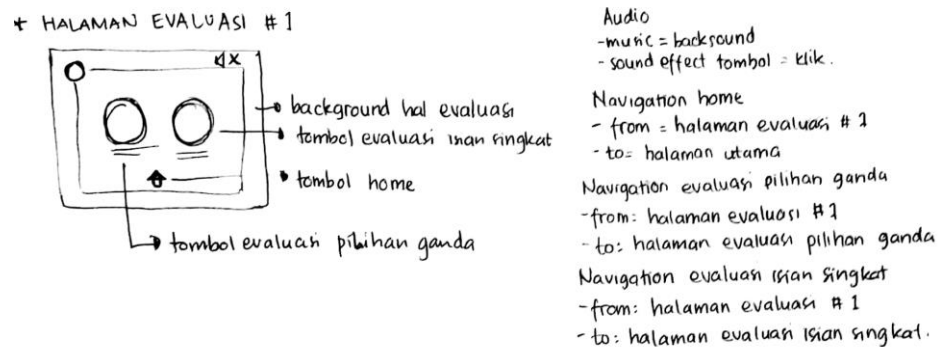 + HALAMAN EVALUASI #1
background hal evaluasi
tombol evaluasi isian singkat
tombol home
tombol evaluasi pilihan ganda
Audio
-music = backsound
- sound effect tombol = klik.
Navigation home
- from = halaman evaluasi #1
- to = halaman utama
Navigation evaluasi pilihan ganda
-from: halaman evaluasi #1
- to: halaman evaluasi pilihan ganda
Navigation evaluasi isian singkat
-from: halaman evaluasi # 1
- to: halaman evaluasi isian singkat.